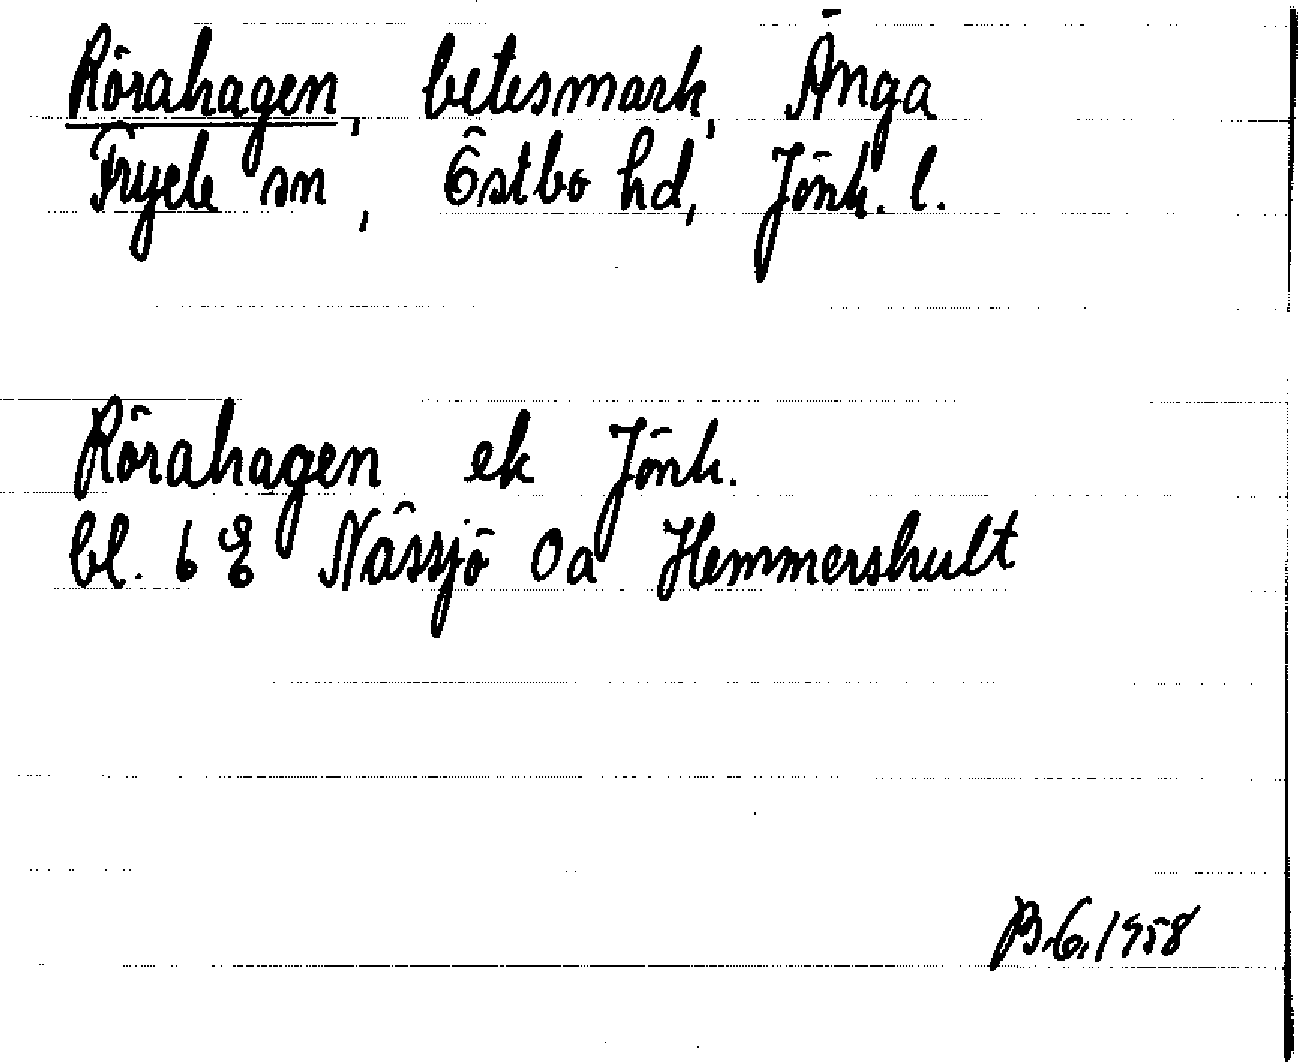 Rörahagen, betesmark, Änga
Fryele sn, Östbo hd, Jönk. l.
Rörahagen ek Jönk.
bl. 6 E Nässjö Oa Hemmershult
B.G. 1958